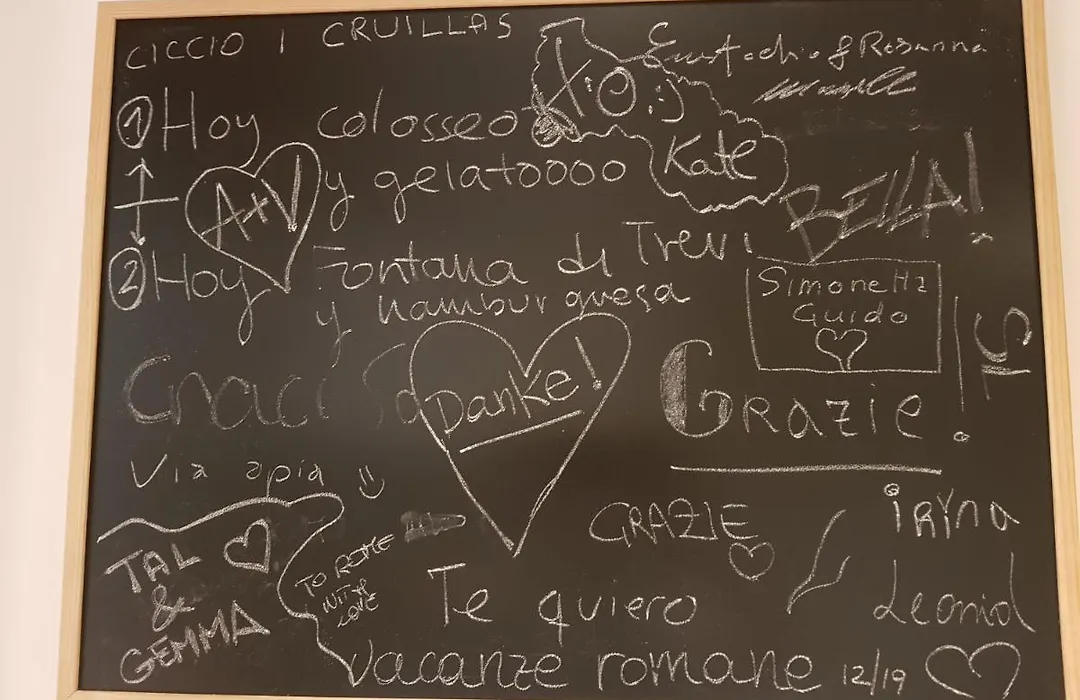 CICCIO I CRUILLAS
Eustochio & Rosanna
XO :)
Kate
1 Hoy colosseo
y gelatoooo
A+V
BELLA!
2 Hoy Fontana di Trevi
y hamburguesa
Simonetta
Guido
Danke!
GRAZIE!
Via apia
TAL
&
GEMMA
TO ROME
WITH
LOVE
GRAZIE
iRYna
Leonid
Te quiero
vacanze romane 12/19